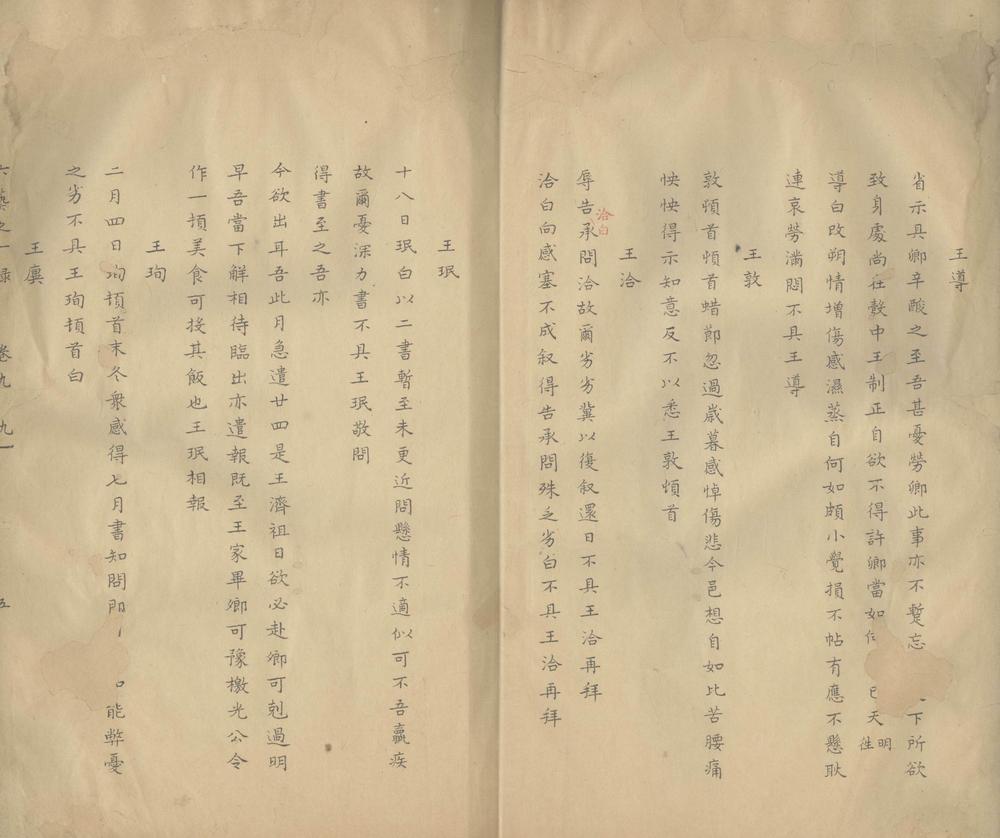 王導
省示具卿辛酸之至吾甚憂勞卿此事亦不蹔忘下所欲
致身處尚在殼中王制正自欲不得許卿當如天明往
導白改朔情增傷感濕蒸自何如頗小覺損不帖有應不懸耿
連哀勞滿悶不具王導
王敦
敦頓首頓首蜡節忽過歲暮感悼傷悲今邑想自如比苦腰痛
怏怏得示知意反不以悉王敦頓首
王洽
洽白
辱告承問洽故爾劣劣冀以復叙還日不具王洽再拜
洽白向感塞不成叙得告承問殊乏劣白不具王洽再拜
王珉
十八日珉白以二書暫至未更近問懸情不適似可不吾羸疾
故爾憂深力書不具王珉敬問
得書至之吾亦
今欲出耳吾此月急遣廿四是王濟祖日欲必赴卿可剋過明
早吾當下觧相待臨出亦遣報既至王家畢卿可豫檄光公令
作一頓美食可投其飯也王珉相報
王珣
二月四日珣頓首末冬衆感得七月書知問能弊憂
之劣不具王珣頓首白
王廙
六藝之一錄 卷九九 五